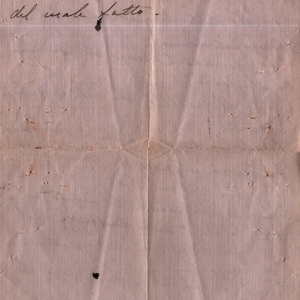 del male fatto.